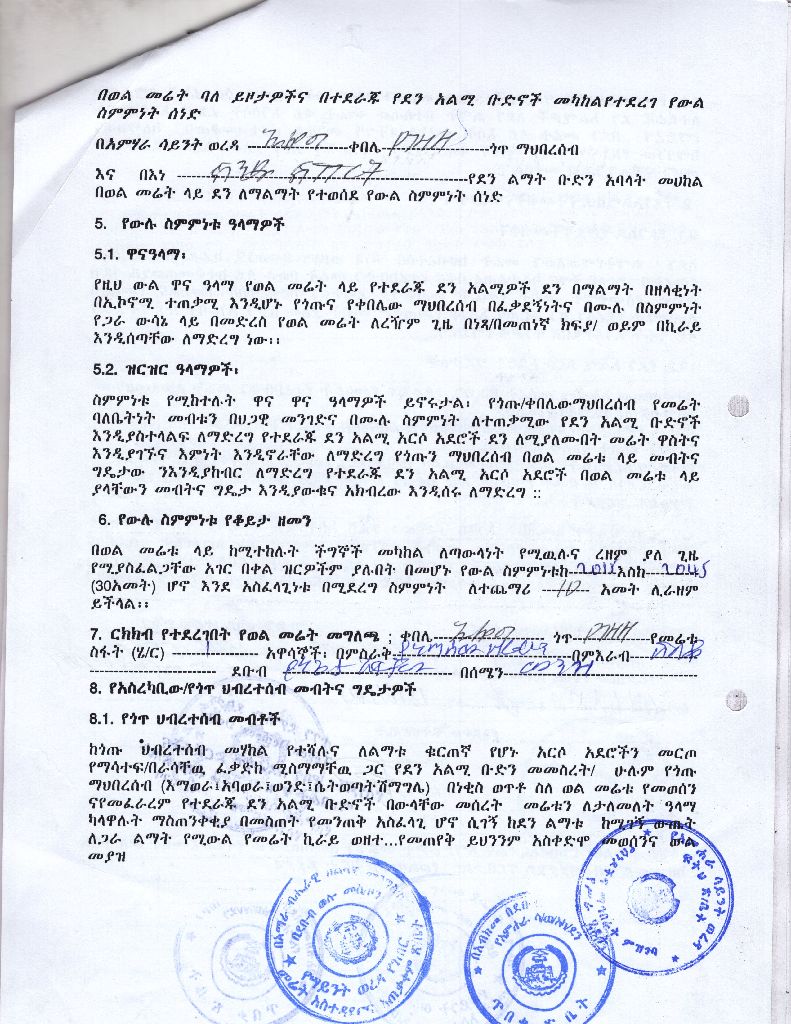 በወል መሬት ባለ ይዞታዎችና በተደራጁ የደን አልሚ ቡድኖች መካከልየተደረገ የውል
ስምምነት ሰነድ
በአምሃራ ሳይንት ወረዳ ------------------ቀበሌ------------------ጎጥ ማህበረሰብ
እና በእነ ------------------የደን ልማት ቡድን አባላት መሀከል
በወል መሬት ላይ ደን ለማልማት የተወሰደ የውል ስምምነት ሰነድ
5. የውሉ ስምምነቱ ዓላማዎች
5.1. ዋናዓላማ፡
የዚህ ውል ዋና ዓላማ የወል መሬት ላይ የተደራጁ ደን አልሚዎች ደን በማልማት በዘላቂነት
በኢኮኖሚ ተጠቃሚ እንዲሆኑ የጎጡና የቀበሌው ማህበረሰብ በፈቃደኝነትና በሙሉ በስምምነት
የጋራ ውሳኔ ላይ በመድረስ የወል መሬት ለረዥም ጊዜ በነጻ/በመጠነኛ ክፍያ/ ወይም በኪራይ
እንዲሰጣቸው ለማድረግ ነው፡፡
5.2. ዝርዝር ዓላማዎች፡
ስምምነቱ የሚከተሉት ዋና ዋና ዓላማዎች ይኖሩታል፡ የጎጡ/ቀበሌውማህበረሰብ የመሬት
ባለቤትነት መብቱን በህጋዊ መንገድና በሙሉ ስምምነት ለተጠቃሚው የደን አልሚ ቡድኖች
እንዲያስተላልፍ ለማድረግ የተደራጁ ደን አልሚ አርሶ አደሮች ደን ለሚያለሙበት መሬት ዋስትና
እንዲያገኙና እምነት እንዲኖራቸው ለማድረግ የጎጡን ማህበረሰብ በወል መሬቱ ላይ መብትና
ግዴታው ንእንዲያከብር ለማድረግ የተደራጁ ደን አልሚ አርሶ አደሮች በወል መሬቱ ላይ
ያላቸውን መብትና ግዴታ እንዲያውቁና አክብረው እንዲሰሩ ለማድረግ ::
6. የውሉ ስምምነቱ የቆይታ ዘመን
በወል መሬቱ ላይ ከሚተከሉት ችግኞች መካከል ለጣውላነት የሚዉሉና ረዘም ያለ ጊዜ
የሚያስፈልጋቸው አገር በቀል ዝርዎችም ያሉበት በመሆኑ የውል ስምምነቱከ------እስከ---2045
(30አመት) ሆኖ እንደ አስፈላጊነቱ በሚደረግ ስምምነት ለተጨማሪ ---10--- አመት ሊራዘም
ይችላል፡፡
7. ርክክብ የተደረገበት የወል መሬት መግለጫ ; ቀበሌ------------ ጎጥ ------------የመሬቱ
ስፋት (ሄ/ር) ------1------ አዋሳኞች፡ በምስራቅ------------------በምእራብ------------
------------------ ደቡብ ------------------ በሰሜን------------------
8. የአስረካቢው/የጎጥ ህብረተሰብ መብትና ግዴታዎች
8.1. የጎጥ ህብረተሰብ መብቶች
ከጎጡ ህብረተሰብ መሃከል የተሻሉና ለልማቱ ቁርጠኛ የሆኑ አርሶ አደሮችን መርጦ
የማሳተፍ/በራሳቸዉ ፈቃድከ ሚስማማቸዉ ጋር የደን አልሚ ቡድን መመስረት/ ሁሉም የጎጡ
ማህበረሰብ (እማወራ፤አባወራ፤ወንድ፤ሴትወጣትሽማግሌ) በነቂስ ወጥቶ ስለ ወል መሬቱ የመወሰን
ናየመፈራረም የተደራጁ ደን አልሚ ቡድኖች በውላቸው መሰረት መሬቱን ለታለመለት ዓላማ
ካላዋሉት ማስጠንቀቂያ በመስጠት የመንጠቅ አስፈላጊ ሆኖ ሲገኝ ከደን ልማቱ ከሚገኝ ውጤት
ለጋራ ልማት የሚውል የመሬት ኪራይ ወዘተ...የመጠየቅ ይህንንም አስቀድሞ መወሰንና ውል
መያዝ